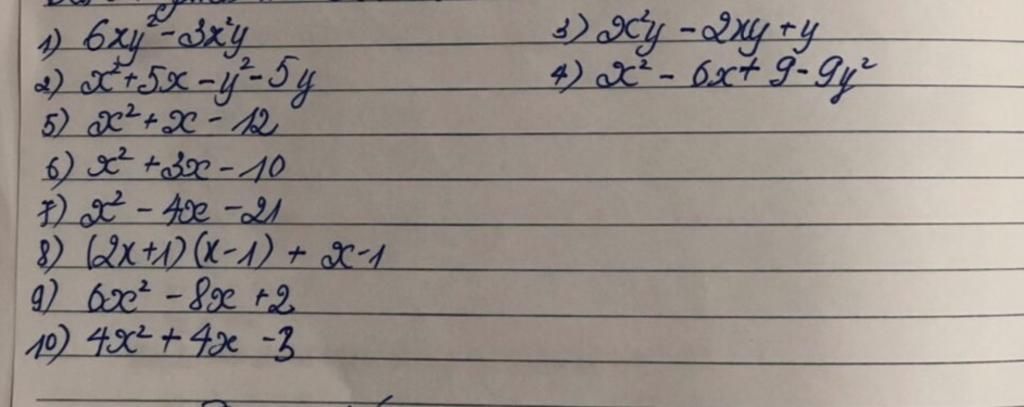 1) 6xy² - 3x²y 3) x²y - 2xy + y
2) x² + 5x - y² - 5y 4) x² - 6x + 9 - 9y²
5) x² + x - 12
6) x² + 3x - 10
7) x² - 4x - 21
8) (2x+1)(x-1) + x-1
9) 6x² - 8x + 2
10) 4x² + 4x - 3